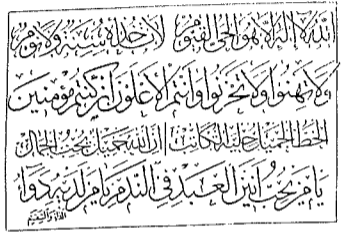 الله لا إله إلا هو الحي القيوم لا تأخذه سنة ولا نوم
ولا تهنوا ولا تحزنوا وانتم الأعلون إن كنتم مؤمنين
الخط الجميل حلية الكاتب إن الله جميل يحب الجمال
يا من يحب انين العبد في الندم يا من لديه دواء